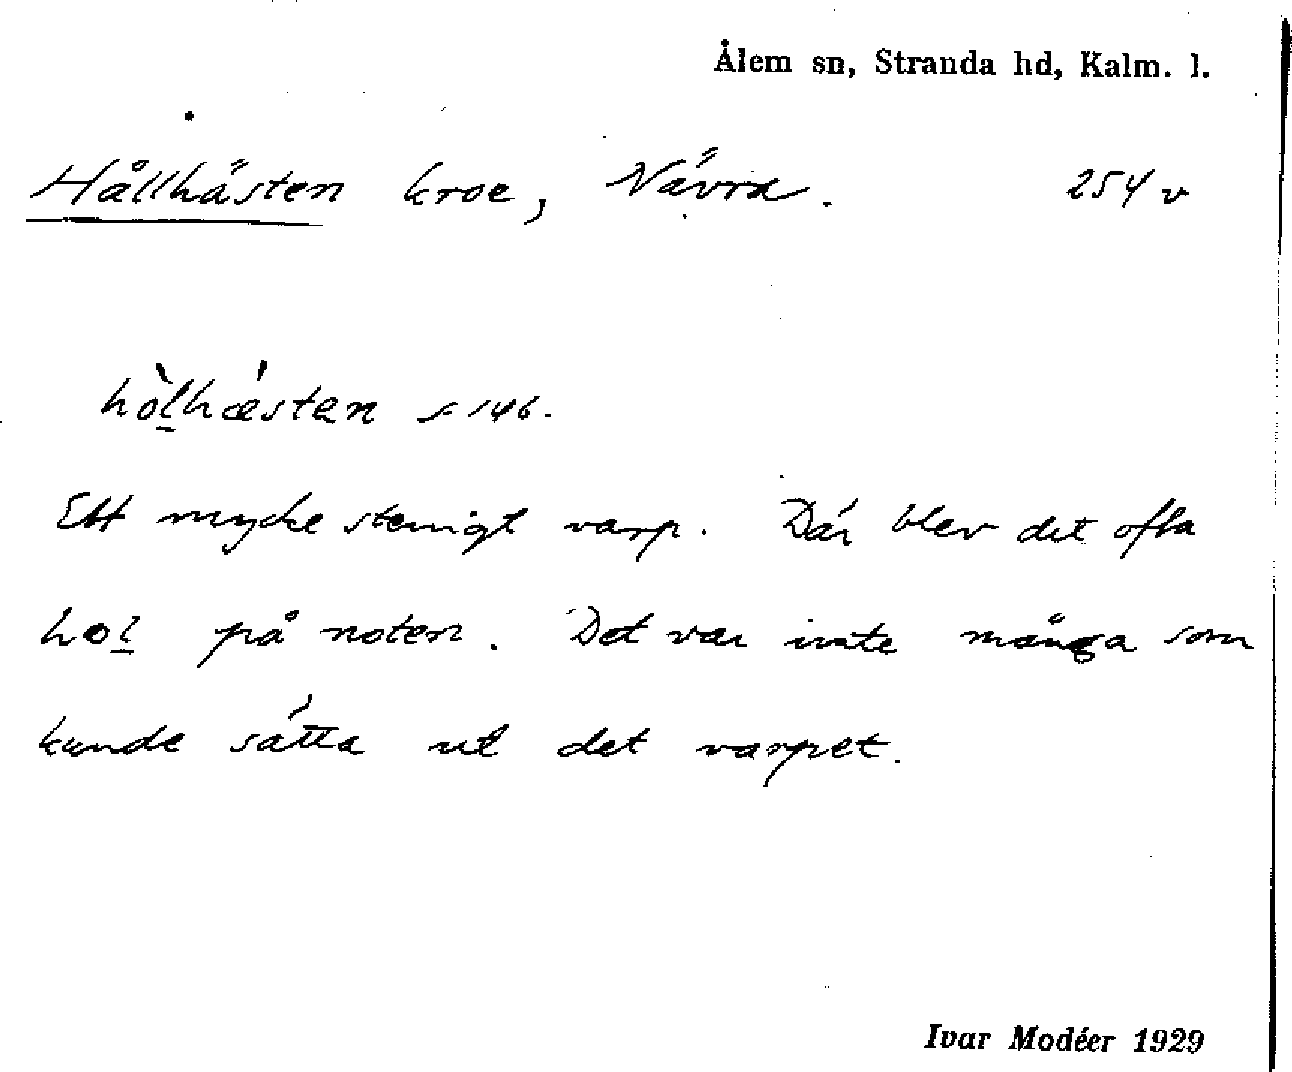 Ålem sn, Stranda hd, Kalm. l.
Hållhästen kroe, Nävra. 254 v
hòl̲hǽsten s 146.
Ett mycke stenigt varp. Där blev det ofta
hol̲ på noten. Det var inte många som
kunde sätta ut det varpet.
Ivar Modéer 1929